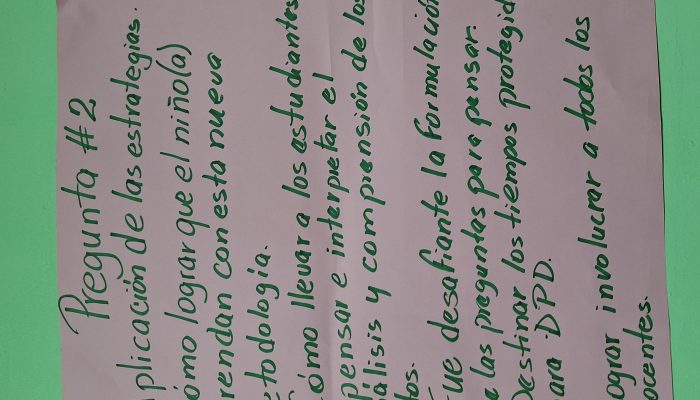 Pregunta #2
plicación de las estrategias.
ómo lograr que el niño(a)
rendan con esta nueva
etodología.
ómo llevar a los estudiantes
pensar e interpretar el
álisis y comprensión de los
tos.
ue desafiante la formulación
e las preguntas para pensar.
Destinar los tiempos protegid
ara DPD.
ograr involucrar a todos los
ocentes.